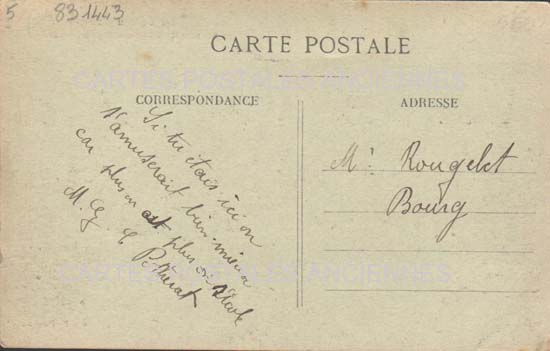 5 831443
CARTE POSTALE
CARTES POSTALES ANCIENNES
CORRESPONDANCE
Si tu étais ici on
s'amuserait bien mieux
car plus on est plus on
M.
ADRESSE
Mr Rougelet
Bourg
CARTES POSTALES ANCIENNES